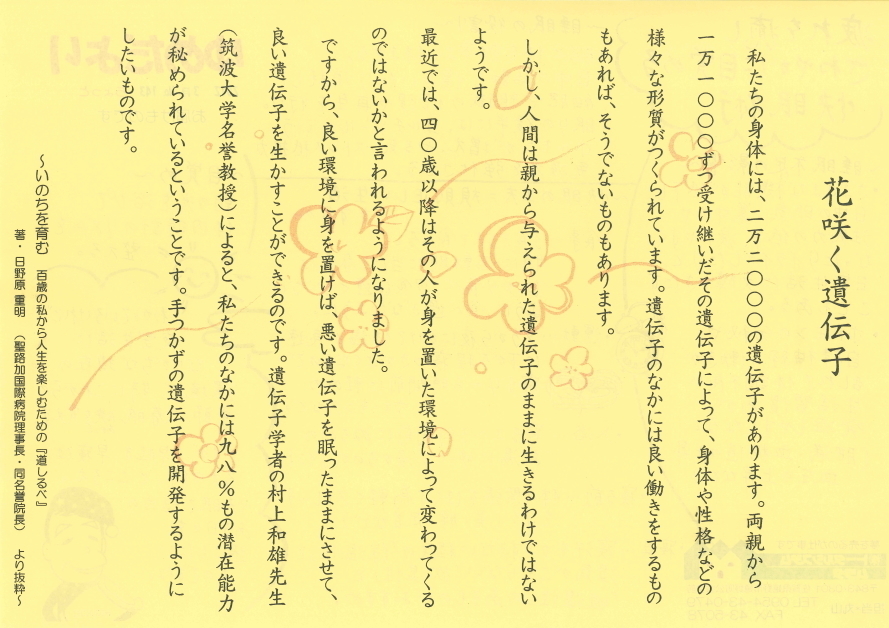 花咲く遺伝子
私たちの身体には、二万二〇〇〇の遺伝子があります。両親から
一万一〇〇〇ずつ受け継いだその遺伝子によって、身体や性格などの
様々な形質がつくられています。遺伝子のなかには良い働きをするもの
もあれば、そうでないものもあります。
しかし、人間は親から与えられた遺伝子のままに生きるわけではない
ようです。
最近では、四〇歳以降はその人が身を置いた環境によって変わってくる
のではないかと言われるようになりました。
ですから、良い環境に身を置けば、悪い遺伝子を眠ったままにさせて、
良い遺伝子を生かすことができるのです。遺伝子学者の村上和雄先生
（筑波大学名誉教授）によると、私たちのなかには九八％もの潜在能力
が秘められているということです。手つかずの遺伝子を開発するように
したいものです。
～いのちを育む　百歳の私から人生を楽しむための『道しるべ』
著・日野原 重明　（聖路加国際病院理事長・同名誉院長）　より抜粋～